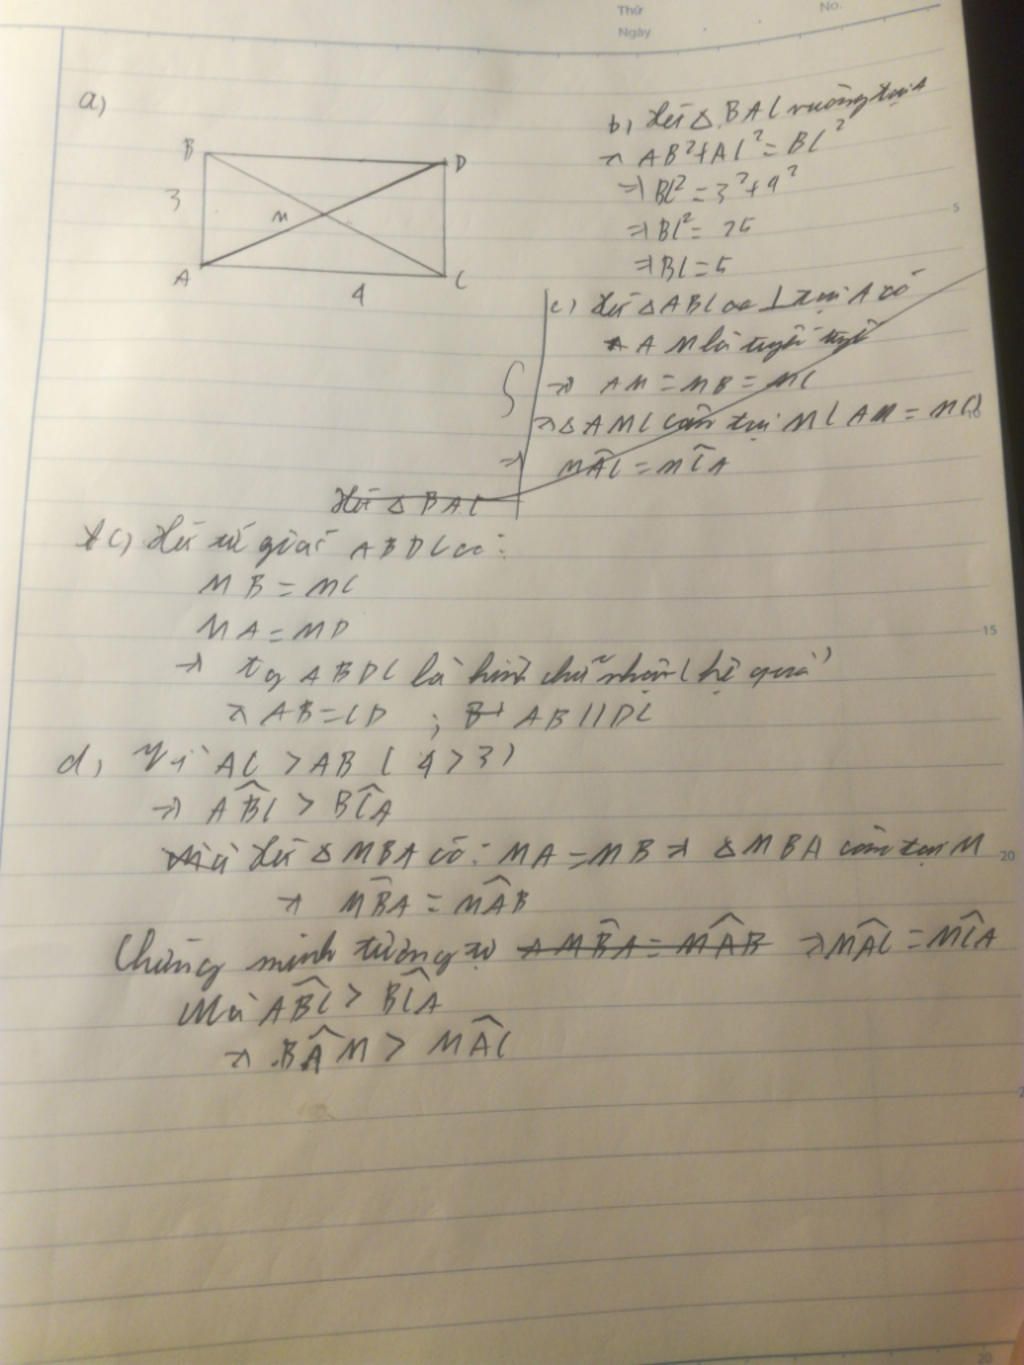 Thứ
No.
Ngày
a)
B
D
3
M
A
C
4
b) Xét △ BAC vuông tại A
→ AB²+AC² = BC²
⇒ BC² = 3²+4²
⇒ BC² = 25
⇒ BC = 5
c) Xét △ ABC ⊥ tại A có
AM là
→ AM = MB = MC
→ △ AMC cân tại M ( AM = MC)
⇒ MÂC = MĈA
Xét △ BAC
c) Xét tứ giác ABDC có:
MB = MC
MA = MD
→ tg ABDC là hình chữ nhật ( hệ quả)
→ AB = CD ; AB // DC
d, Vì AC > AB ( 4 > 3 )
→ AB̂C > BĈA
Xét △ MBA có: MA = MB ⇒ △ MBA cân tại M
→ MB̂A = MÂB
Chứng minh tương tự MB̂A = MÂB → MÂC = MĈA
Mà AB̂C > BĈA
→ BÂM > MÂC
5
10
15
20
20